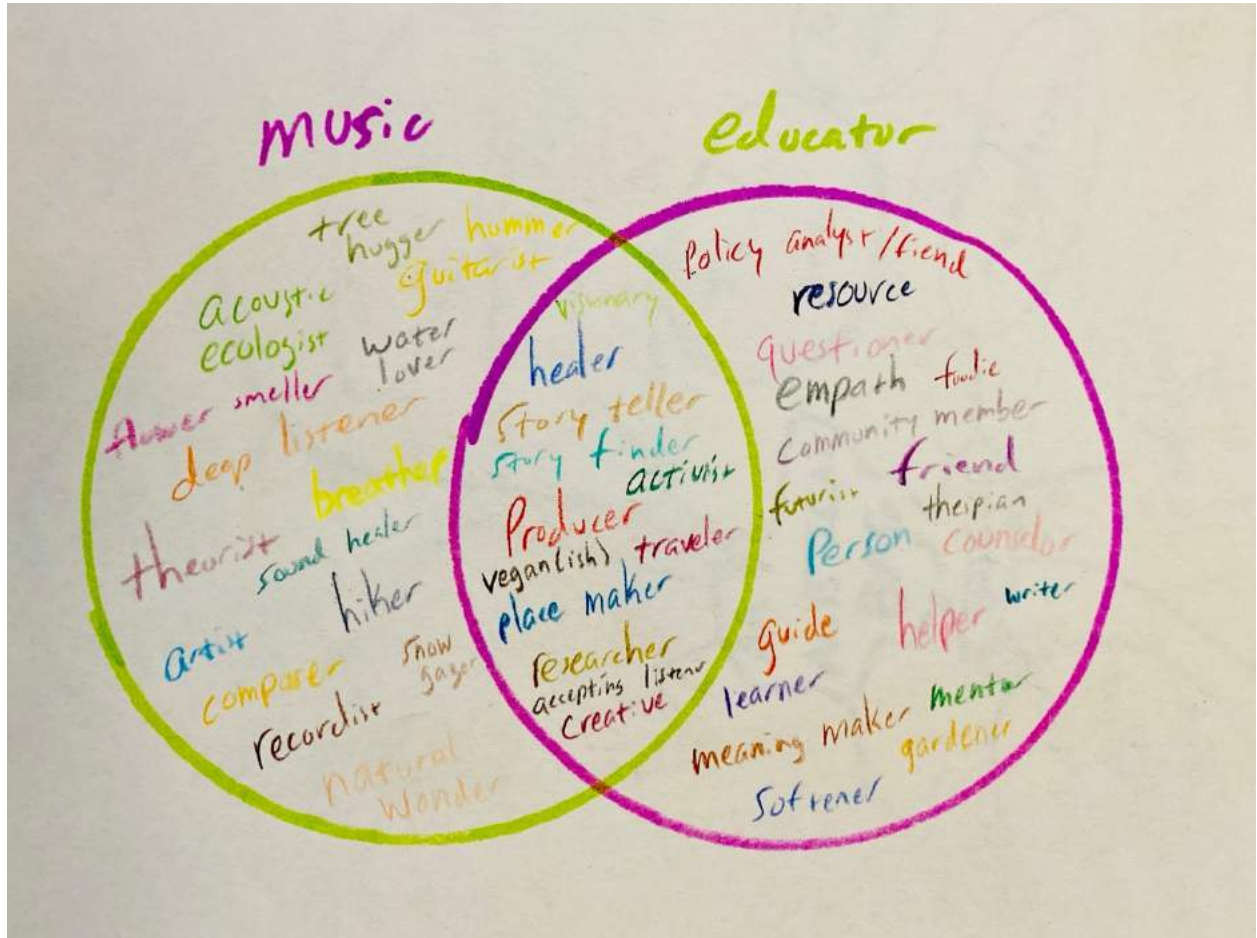 music
educator
tree
hugger
hummer
guitarist
acoustic
ecologist
water
lover
flower smeller
deep listener
breather
theorist
sound healer
hiker
artist
composer
snow
gazer
recordist
natural
wonder
visionary
healer
story teller
story finder
activist
Producer
vegan(ish)
traveler
place maker
researcher
accepting listener
creative
Policy analyst/fiend
resource
questioner
empath
foodie
community member
friend
futurist
thespian
Person
counselor
guide
helper
writer
learner
meaning maker
mentor
gardener
softener